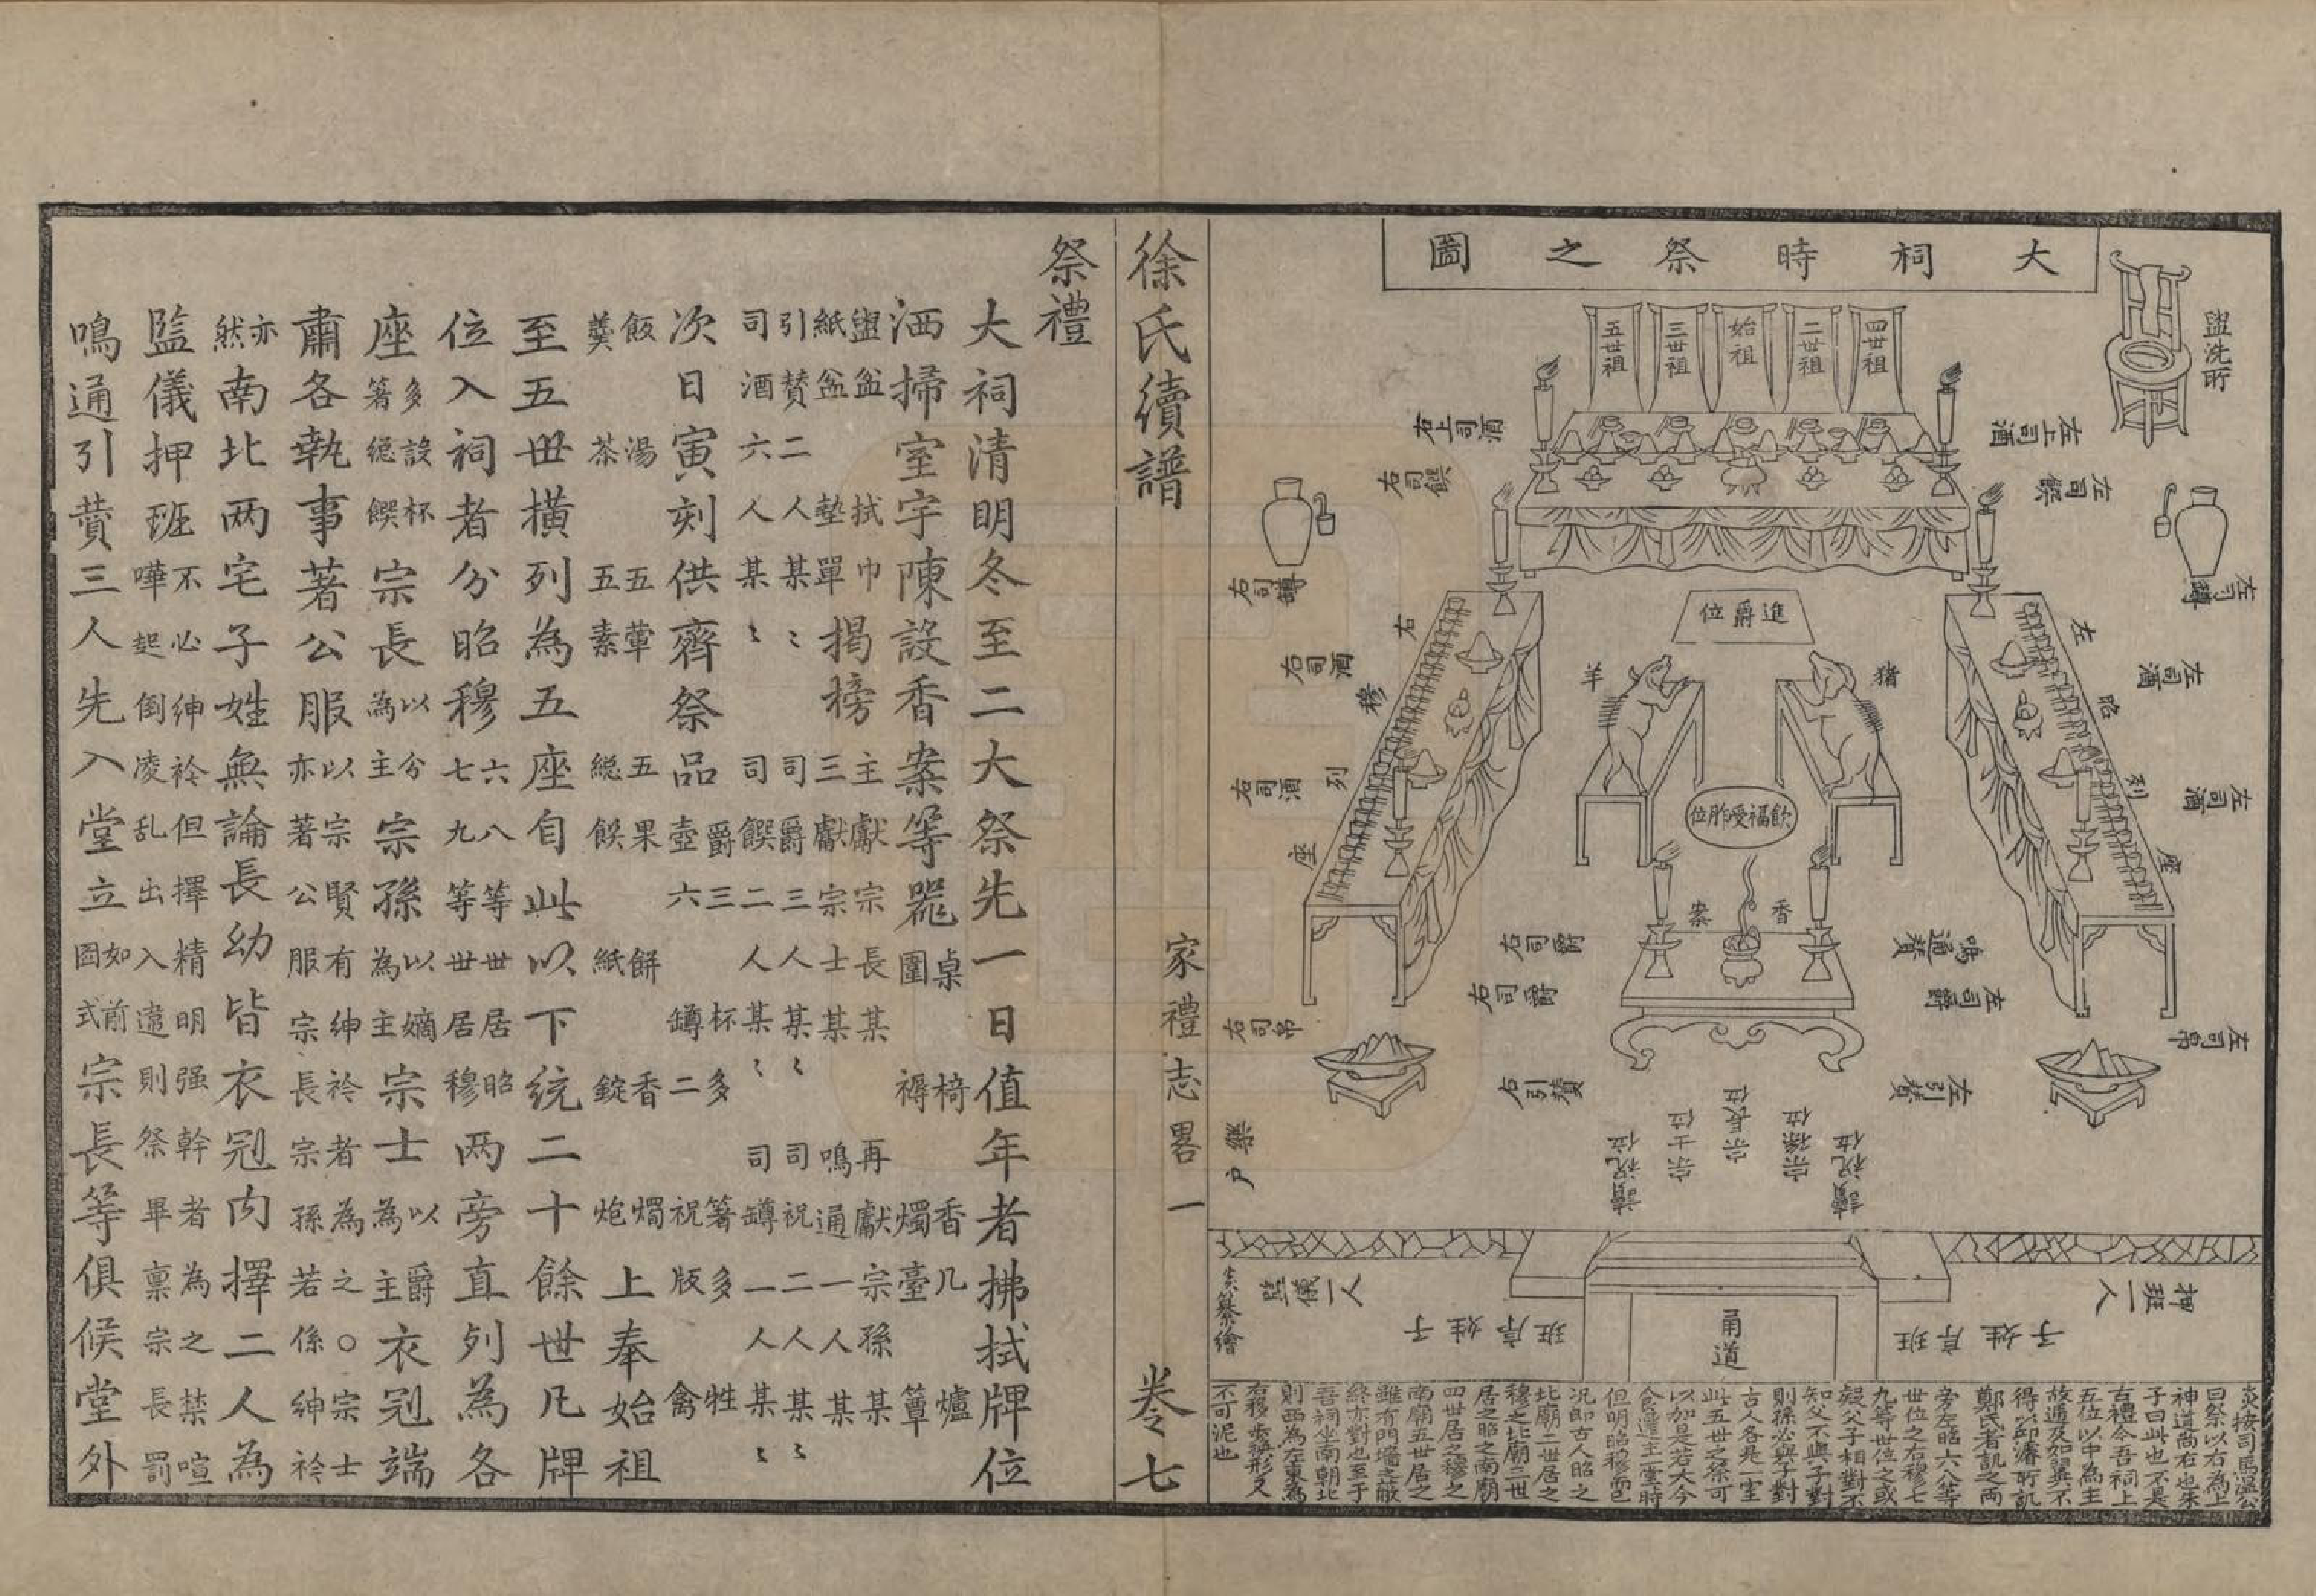 大祠時祭之圖
盥洗所
四世祖
二世祖
始祖
三世祖
五世祖
左上司酒
右上司酒
左司饌
右司饌
左司罇
右司罇
進爵位
猪
羊
左昭列座
右穆列座
左司酒
左司酒
右司酒
右司酒
飲福受胙位
香案
鳴通贊
右司爵
左司爵
右司爵
左司帛
右司帛
左引贊
右引贊
讀祝位
宗孫位
宗長位
宗士位
讀祝位
樂户
押班一人
監儀一人
炎纂繪
子姓序班
子姓序班
甬道
炎按司馬溫公
曰祭以右為上
神道尚右也朱
子曰此也不是
古禮今吾祠上
五位以中為主
故遞及如翼不
得以邱濬所訊
鄭氏者訊之兩
旁左昭六八等
世位之右穆七
九等世位之或
疑父子相對不
知父不與子對
則孫必與子對
古人各是一室
此五世之祭可
以加是若大今
食遷主一堂時
但明昭穆而已
况即古人昭之
北廟二世居之
穆之北廟三世
居之昭之南廟
四世居之穆之
南廟五世居之
雖有門墻之蔽
終亦對也至于
吾祠坐南朝北
則西為左東為
右移步換形又
不可泥也
徐氏續譜 家禮志畧 一 卷七
祭禮
大祠清明冬至二大祭先一日值年者拂拭牌位
洒掃室宇陳設香案等器桌圍 椅褥 香几 燭臺 爐簟
盥盆 紙盆 拭巾 墊單 揭榜 主獻宗長某 三獻宗士某 再獻宗孫某 鳴通一人某
引贊二人某〻 司酒六人某〻 司爵三人某〻 司饌二人某〻 司祝二人某〻 司罇一人某〻
次日寅刻供齊祭品 爵三 壺六 杯多 罇二 箸多 祝版 牲禽
飯羹 湯茶 五葷 五素 五果 總餱 餅紙 香錠 燭炮 上奉始祖
至五世橫列為五座自此以下統二十餘世凡牌
位入祠者分昭穆六八等世居昭七九等世居穆两旁直列為各
座多設杯箸總饌宗長以分為主宗孫以嫡為主宗士以爵為主衣冠端
肅各執事著公服以宗賢有紳衿者為之○宗士亦著公服宗長宗孫若係紳衿
亦然南北两宅子姓無論長幼皆衣冠内擇二人為
監儀押班不必紳衿但擇精明强幹者為之禁喧嘩起倒凌乱出入違則祭畢稟宗長罰
鳴通引贊三人先入堂立如前圖式宗長等俱候堂外